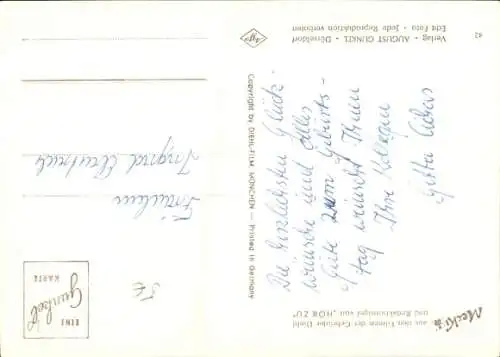 Mecki
aus den Filmen der Gebrüder Diehl
und Redaktionsigel von „HÖR ZU"
Die herzlichsten Glück-
wünsche und alles
Gute zum Geburts-
tag wünscht Ihnen
Ihre Kollegin
Gitta
Copyright by DIEHL-FILM MÜNCHEN — Printed in Germany
Agfa
Verlag · AUGUST GUNKEL · Düsseldorf
Echt Foto · Jede Reproduktion verboten
42
EINE
Gunkel
KARTE
Fräulein
Ingrid